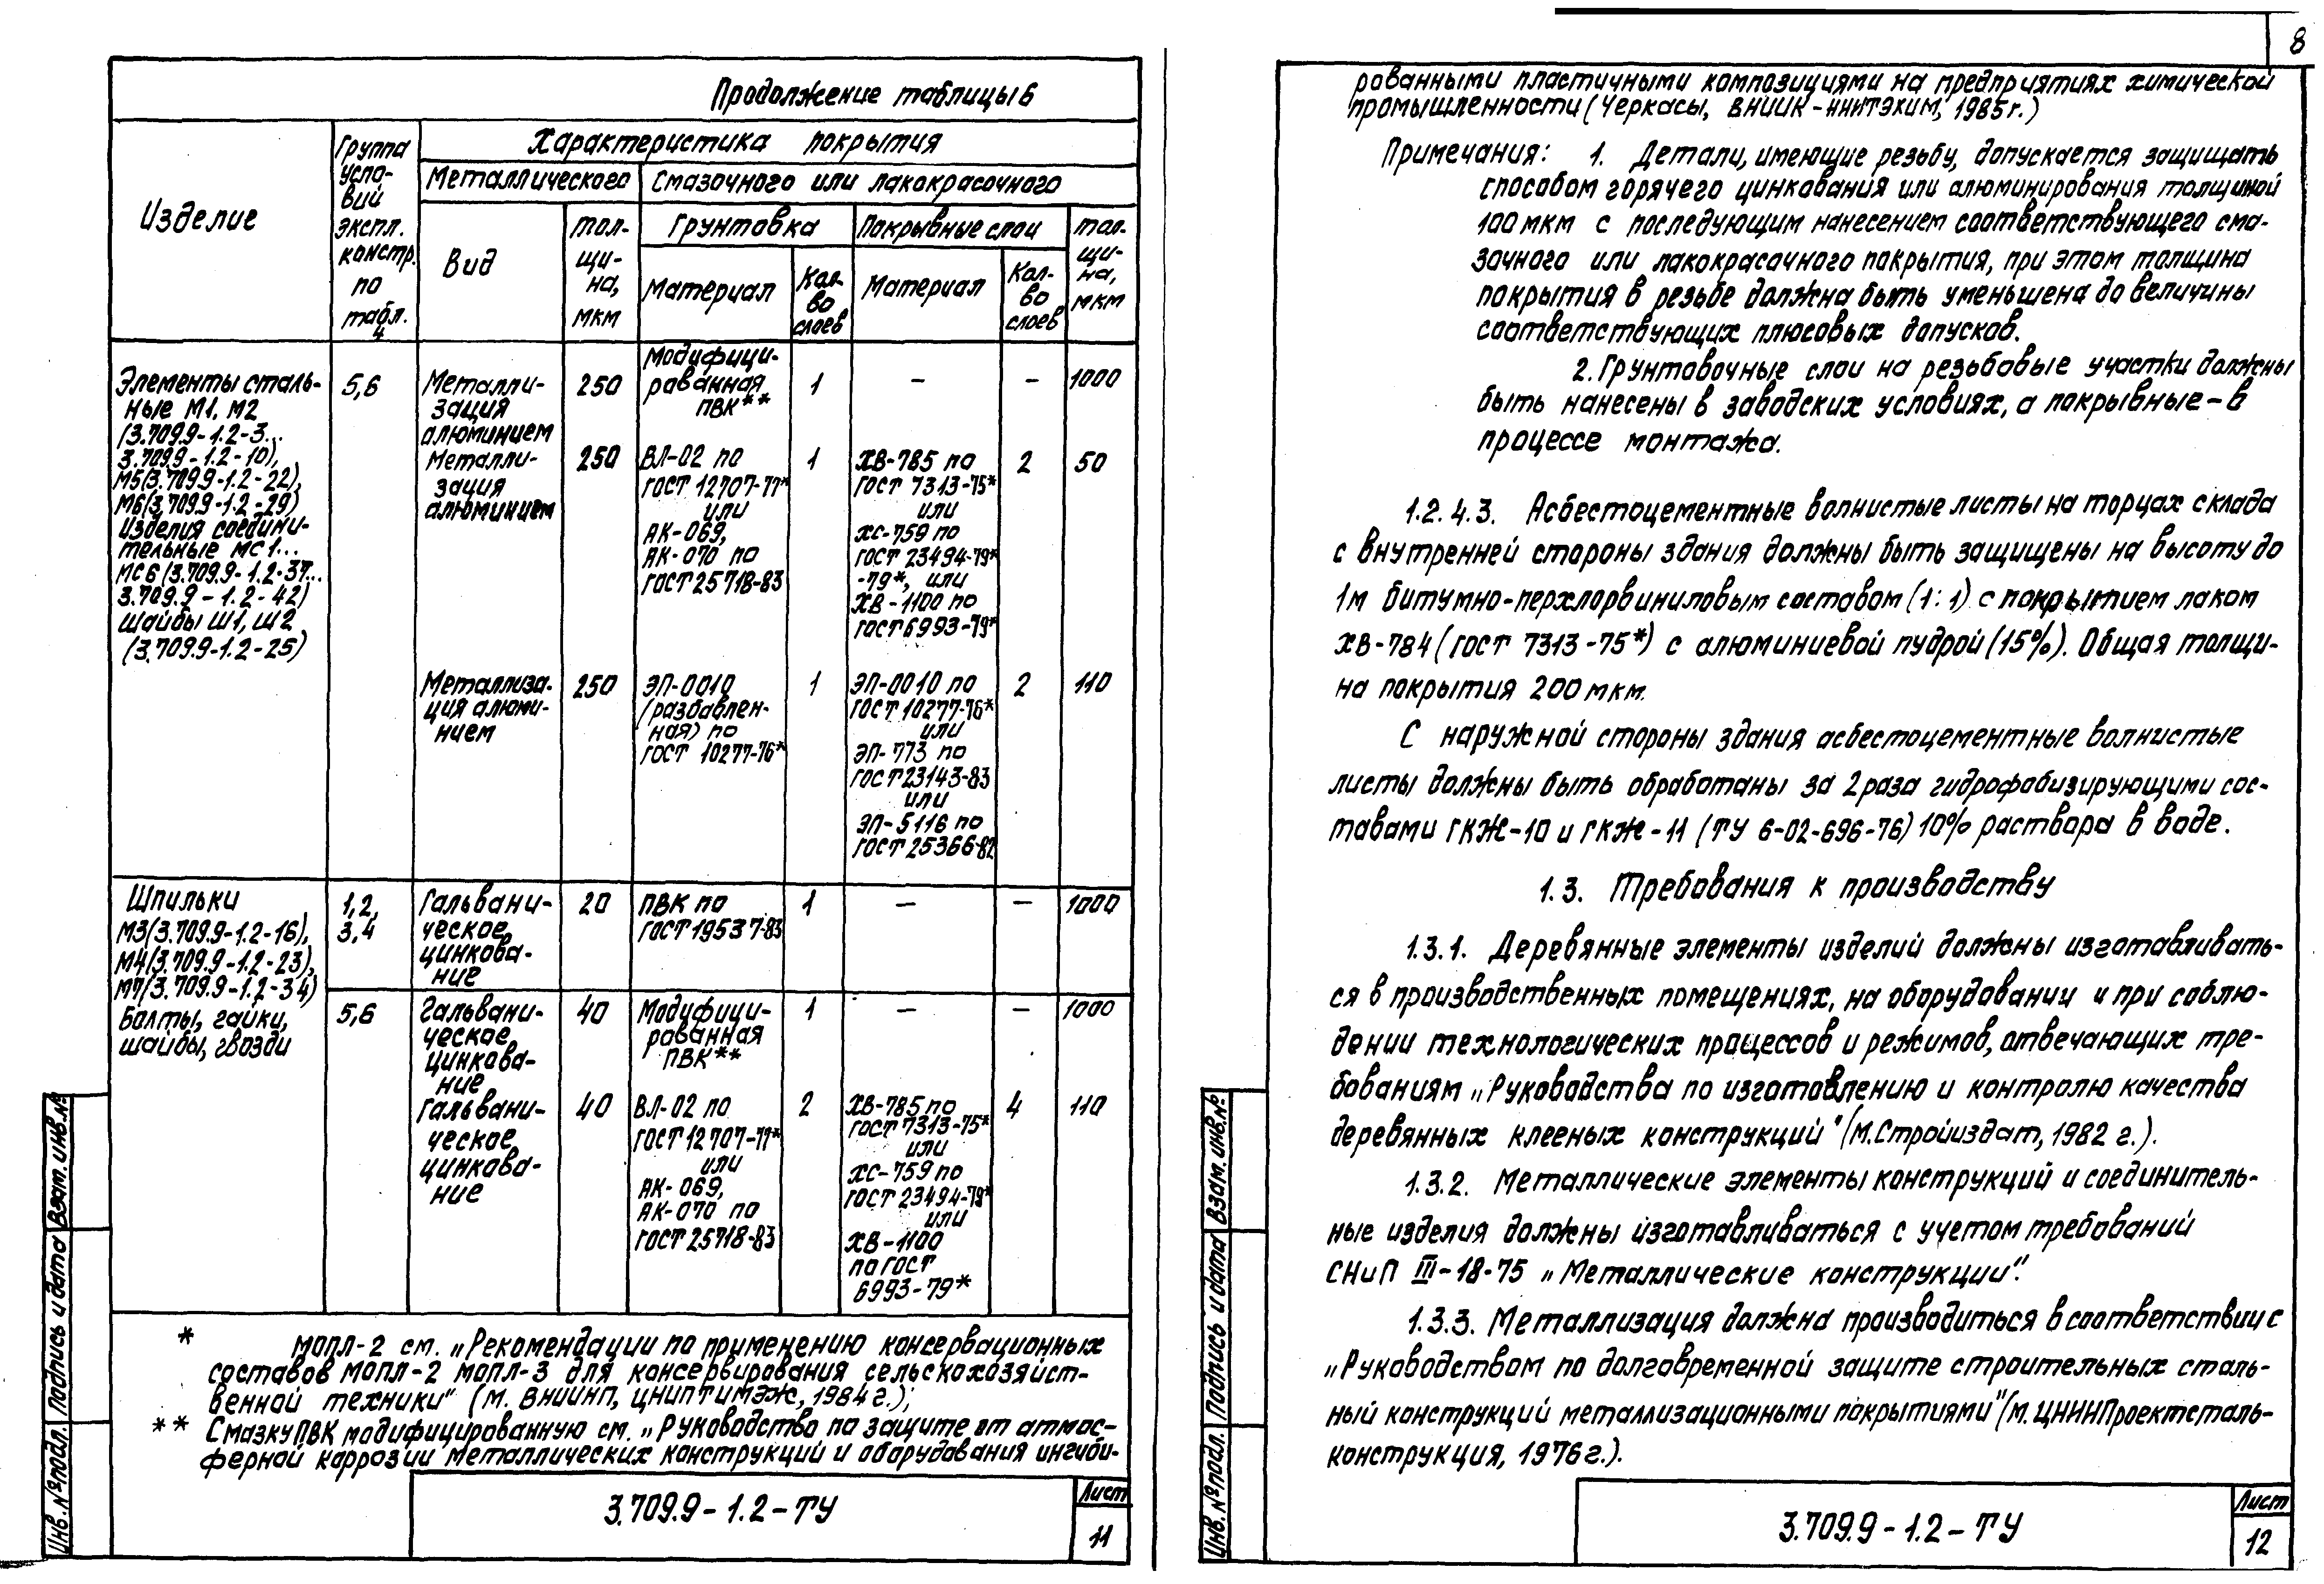 Продолжение таблицы 6
Изделие
Группа
усло-
вий
экспл.
констр.
по
табл.
4
Характеристика покрытия
Металлического
Смазочного или лакокрасочного
Вид
Тол-
щи-
на,
мкм
Грунтовка
Покрывные слои
Тол-
щи-
на,
мкм
Материал
Кол-
во
слоев
Материал
Кол-
во
слоев
Элементы сталь-
ные М1, М2
(3.709.9-1.2-3...
3.709.9-1.2-10),
М5(3.709.9-1.2-22),
М6(3.709.9-1.2-29)
Изделия соедини-
тельные МС1...
МС6 (3.709.9-1.2-37...
3.709.9-1.2-42)
Шайбы Ш1, Ш2
(3.709.9-1.2-25)
5,6
Металли-
зация
алюминием
250
Модифици-
рованная
ПВК**
1
—
—
1000
Металли-
зация
алюминием
250
ВЛ-02 по
ГОСТ 12707-77*
или
АК-069,
АК-070 по
ГОСТ 25718-83
1
ХВ-785 по
ГОСТ 7313-75*
или
ХС-759 по
ГОСТ 23494-79*
-79*, или
ХВ-1100 по
ГОСТ 6993-79*
2
50
Металлиза-
ция алюми-
нием
250
ЭП-0010
(разбавлен-
ная) по
ГОСТ 10277-76*
1
ЭП-0010 по
ГОСТ 10277-76*
или
ЭП-773 по
ГОСТ 23143-83
или
ЭП-5116 по
ГОСТ 25366-82
2
110
Шпильки
М3(3.709.9-1.2-16),
М4(3.709.9-1.2-23),
М7(3.709.9-1.2-34)
Болты, гайки,
шайбы, гвозди
1,2,
3,4
Гальвани-
ческое
цинкова-
ние
20
ПВК по
ГОСТ 19537-83
1
—
—
1000
5,6
Гальвани-
ческое
цинкова-
ние
40
Модифици-
рованная
ПВК**
1
—
—
1000
Гальвани-
ческое
цинкова-
ние
40
ВЛ-02 по
ГОСТ 12707-77*
или
АК-069,
АК-070 по
ГОСТ 25718-83
2
ХВ-785 по
ГОСТ 7313-75*
или
ХС-759 по
ГОСТ 23494-79*
или
ХВ-1100
по ГОСТ
6993-79*
4
110
* МОПЛ-2 см. „Рекомендации по применению консервационных
составов МОПЛ-2 МОПЛ-3 для консервирования сельскохозяйст-
венной техники" (М. ВНИИНП, ЦНИПТИМЭЖ, 1984 г.);
** Смазку ПВК модифицированную см. „Руководство по защите от атмос-
ферной коррозии металлических конструкций и оборудования ингиби-
3.709.9-1.2-ТУ
Лист
11
Инв. № подл. Подпись и дата Взам. инв. №
8
рованными пластичными композициями на предприятиях химической
промышленности (Черкасы, ВНИИК-НИИТЭХИМ, 1985 г.)
Примечания: 1. Детали, имеющие резьбу, допускается защищать
способом горячего цинкования или алюминирования толщиной
100 мкм с последующим нанесением соответствующего сма-
зочного или лакокрасочного покрытия, при этом толщина
покрытия в резьбе должна быть уменьшена до величины
соответствующих плюсовых допусков.
2. Грунтовочные слои на резьбовые участки должны
быть нанесены в заводских условиях, а покрывные – в
процессе монтажа.
1.2.4.3. Асбестоцементные волнистые листы на торцах склада
с внутренней стороны здания должны быть защищены на высоту до
1м битумно-перхлорвиниловым составом (1:1) с покрытием лаком
ХВ-784 (ГОСТ 7313-75*) с алюминиевой пудрой (15%). Общая толщи-
на покрытия 200 мкм.
С наружной стороны здания асбестоцементные волнистые
листы должны быть обработаны за 2 раза гидрофобизирующими сос-
тавами ГКЖ-10 и ГКЖ-11 (ТУ 6-02-696-76) 10% раствора в воде.
1.3. Требования к производству
1.3.1. Деревянные элементы изделий должны изготавливать-
ся в производственных помещениях, на оборудовании и при соблю-
дении технологических процессов и режимов, отвечающих тре-
бованиям „Руководства по изготовлению и контролю качества
деревянных клееных конструкций" (М. Стройиздат, 1982 г.).
1.3.2. Металлические элементы конструкций и соединитель-
ные изделия должны изготавливаться с учетом требований
СНиП III-18-75 „Металлические конструкции".
1.3.3. Металлизация должна производиться в соответствии с
„Руководством по долговременной защите строительных сталь-
ный конструкций металлизационными покрытиями" (М. ЦНИИПроектсталь-
конструкция, 1976 г.).
3.709.9-1.2-ТУ
Лист
12
Инв. № подл. Подпись и дата Взам. инв. №